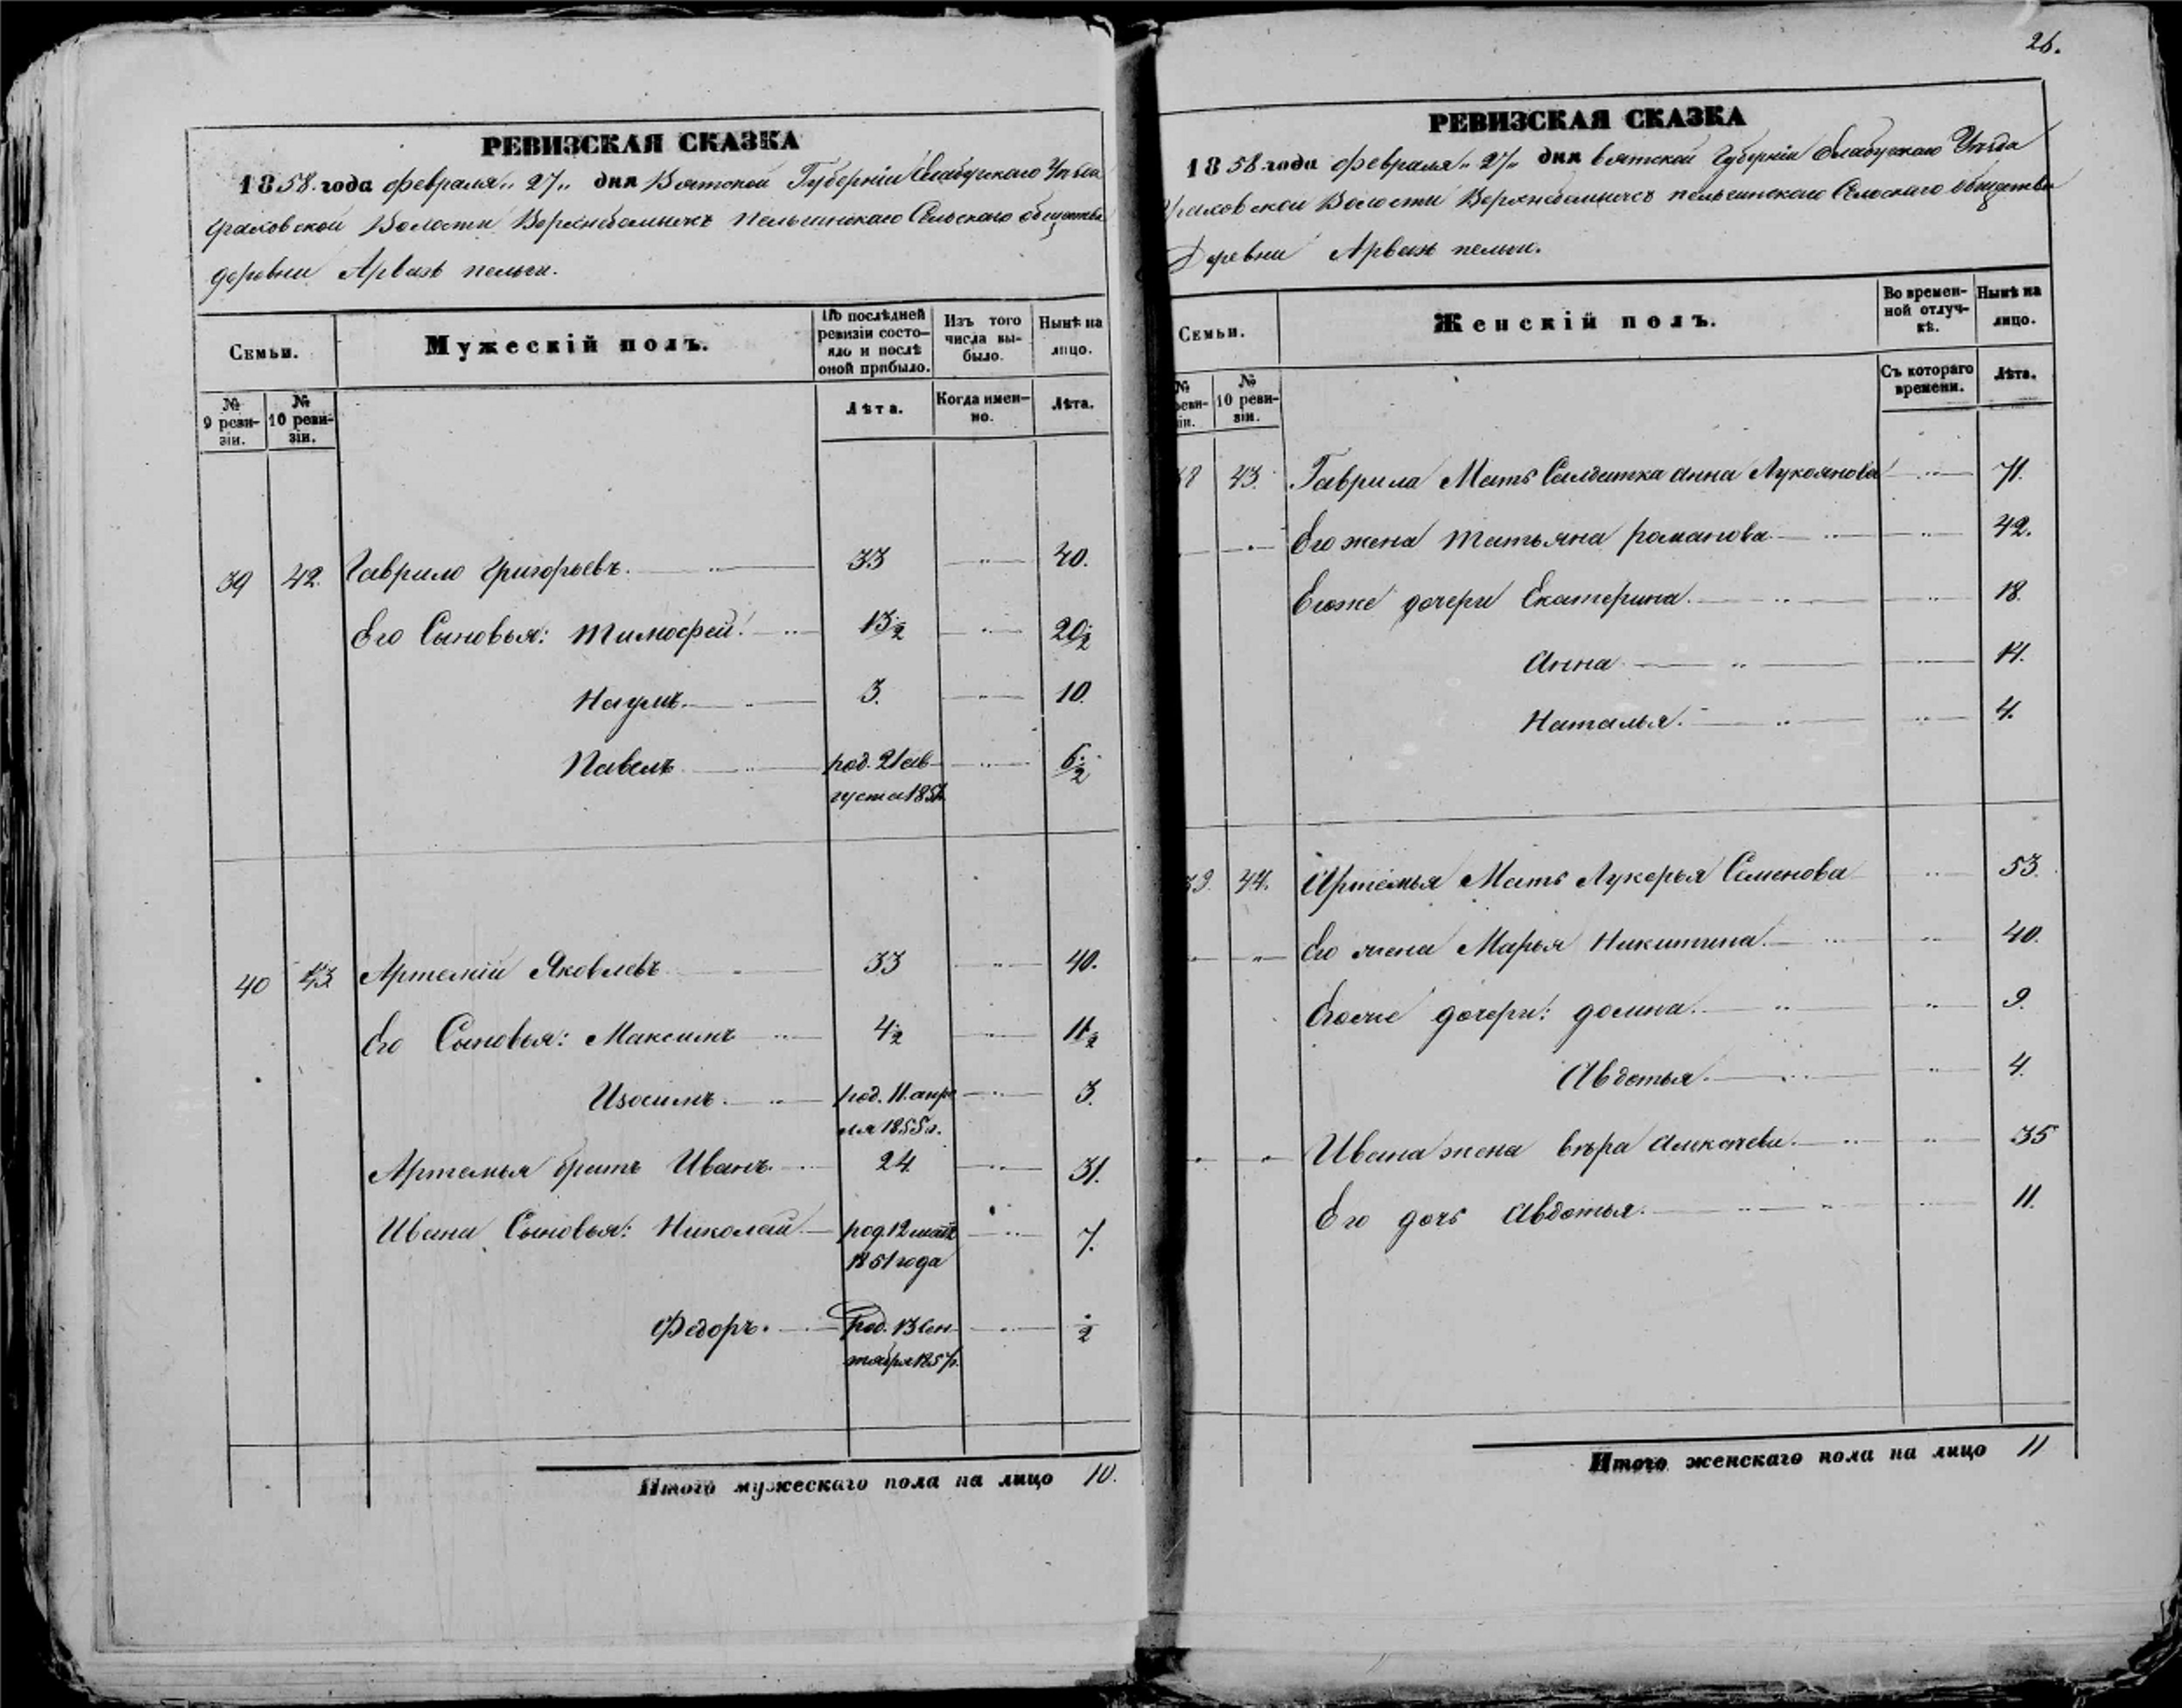 26.
РЕВИЗСКАЯ СКАЗКА
1858. года февраля „ 27 „ дня Вятской Губерніи Елабужскаго Уѣзда
Граховской Волости Верхнебемыжъ пельгинскаго Сельскаго общества
деревни Арвазь пельги.
Семьи.
№ 9 ревизіи.
№ 10 ревизіи.
Мужескій полъ.
По послѣдней ревизіи состояло и послѣ оной прибыло.
Лѣта.
Изъ того числа выбыло.
Когда именно.
Нынѣ на лицо.
Лѣта.
39 42. Гаврило Григорьевъ. 33 „ 40.
Его Сыновья: Тимофей. 13½ „ 20½
Наумъ. 3. „ 10.
Павелъ род. 21 ав- „ 6½
густа 1851.
40 43 Артемій Яковлевъ 33 „ 40.
Его Сыновья: Максимъ 4½ „ 11½
Изосимъ. род. 11. апре „ 3.
ля 1855 г.
Артемья братъ Иванъ. 24 „ 31.
Ивана Сыновья: Николай род. 12 „ 7.
1851 года
Федоръ. Род. 13 Сен- „ ½
тября 1857 г.
Итого мужескаго пола на лицо 10.
РЕВИЗСКАЯ СКАЗКА
1858 года февраля „ 27 „ дня вятской Губерніи Елабужскаго Уѣзда
Граховской Волости Верхнебемыжъ пельгинскаго Сельскаго общества
Деревни Арвазь пельги.
Семьи.
№ реви- іи.
№ 10 ревизіи.
Женскій полъ.
Во временной отлучкѣ.
Съ котораго времени.
Нынѣ на лицо.
Лѣта.
38 43. Гаврила Мать Салдатка Анна Лукоянова „ 71.
Его жена Татьяна романова „ 42.
Егоже дочери Екатерина. „ 18.
Анна „ 14.
Наталья. „ 4.
39. 44. Артемья Мать Лукерья Семенова „ 53.
Его жена Марья Никитина. „ 40.
Егоже дочери: домна. „ 9.
Авдотья. „ 4.
Ивана жена вѣра „ 35
Его дочь Авдотья. „ 11.
Итого женскаго пола на лицо 11